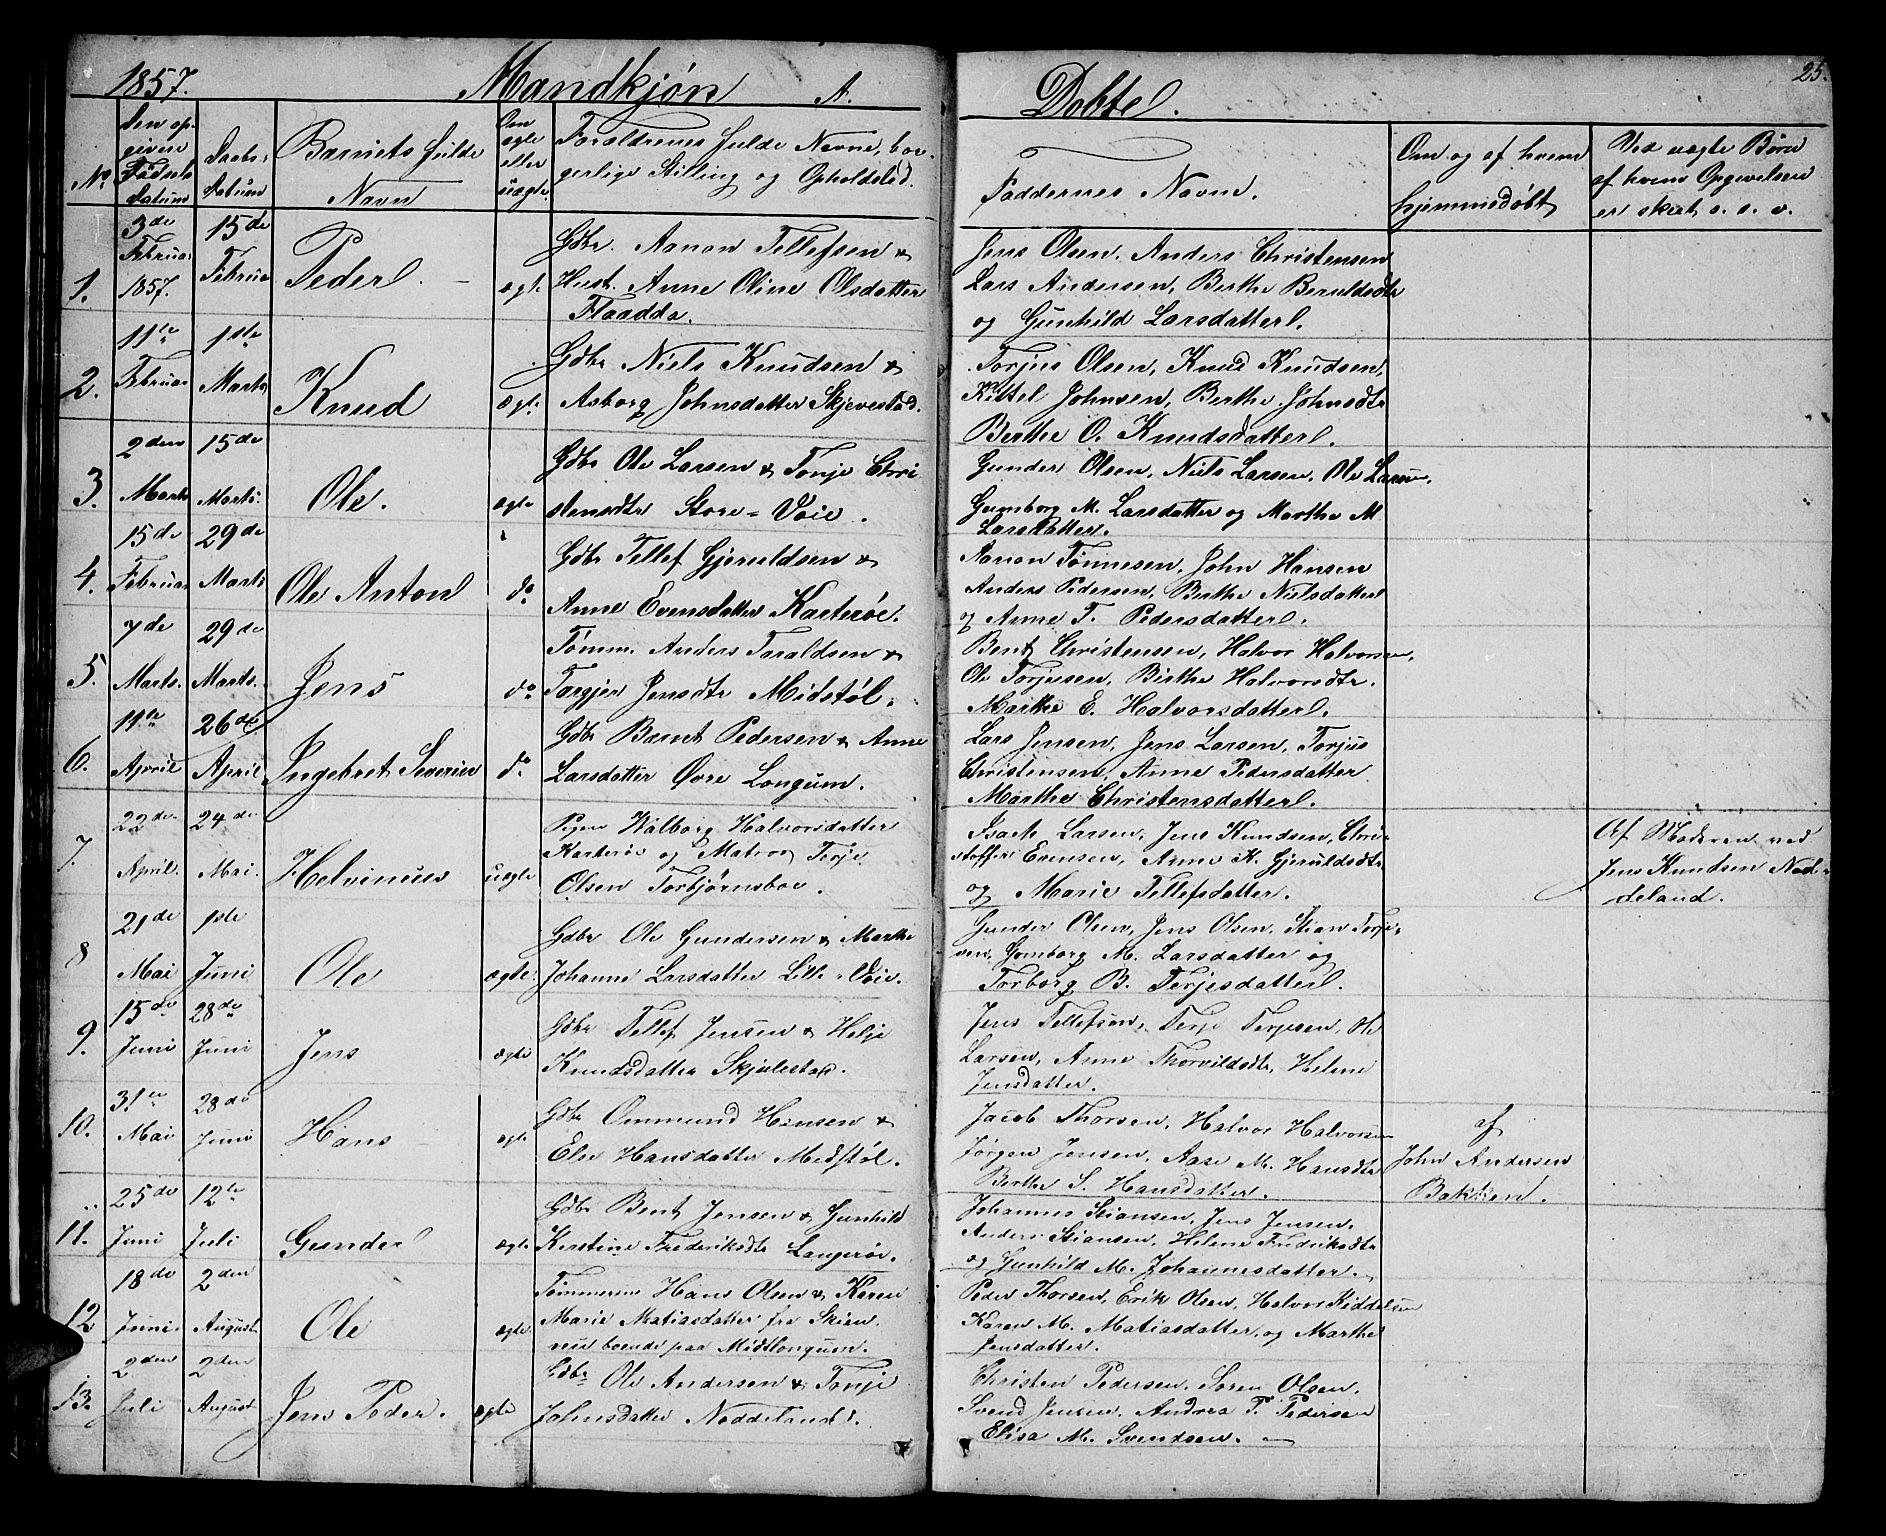 1857. Mandkjøn A. Døbte. 25.
No
den op-
givne
Fødsels
Datum
Daabs-
Datum
Barnets fulde
Navn
Om
ægte
eller
uægte.
Forældrenes fulde Navne, bor-
gerlige Stilling og Opholdsted.
Faddernes Navne.
Om og af hvem
hjemmedøbt
Ved uægte Børn
af hvem Opgivelsen
er skeet o. s. v.
1.
3de
Februar
1857.
15de
Februar
Peder.
ægte
Gdbr. Aanon Tellefsen &
Hust. Anne Oline Olsdatter
Flaadda.
Jens Olsen, Anders Christensen
Lars Andersen, Berthe Beruldsdtr
og Gunhild Larsdatter.
2.
11te
Februar
1ste
Marts
Knud
ægte
Gdbr Niels Knudsen &
Asborg Johnsdatter Skjevestad.
Torjus Olsen, Knud Knudsen,
Kittel Johnsen, Berthe Johnsdtr
Berthe O. Knudsdatter.
3.
2den
Marts
15de
Marts.
Ole.
ægte
Gdbr Ole Larsen & Tonje Chri
stensdtr Store-Voie.
Gunder Olsen, Niels Larsen, Ole Larsen,
Gumborg M. Larsdatter og Marthe M
Larsdatter.
4.
15de
Februar
29de
Marts
Ole Anton
do
Gdbr Tellef Gjeruldsen &
Anne Evensdatter Kasterøe.
Aanon Tønnesen, John Hansen
Anders Pedersen, Berthe Nielsdatter
og Anne T. Pedersdatter.
5.
7de
Marts.
29de
Marts.
Jens
do
Tømm. Anders Taraldsen &
Targjer Jensdtr Midstøl.
Bent Christensen, Halvor Halvorsen,
Ole Torjusen, Birthe Halvorsdtr.
Marthe E. Halvorsdatter.
6.
11te
April
26de
April
Ingebret Severin
do
Gdbr Bernt Pedersen & Anne
Larsdatter Øvre Longum.
Lars Jensen, Jens Larsen, Torjus
Christensen, Anne Pedersdatter
Marthe Christensdatter.
7.
22de
April.
24de
Mai.
Helvinius
uægte
Pigen Walborg Halvorsdatter
Kasterøe og Matros Terje
Olsen Torbjørnsboe.
Isack Larsen, Jens Knudsen, Chri-
stoffer Evensen, Anne K. Gjeruldsdtr
og Marie Tellefsdatter.
Af Moderen ved
Jens Knudsen Ned-
deland.
8
21de
Mai
1ste
Juni
Ole
ægte.
Gdbr Ole Gundersen & Marthe
Johanne Larsdatter Lille-Voie.
Gunder Olsen, Jens Olsen, Stian Torje-
sen, Gomborg M. Larsdatter og
Torborg B. Terjesdatter.
9.
15de
Juni
28de
Juni
Jens
ægte
Gdbr Tellef Jensen & Helje
Knudsdatter Skjulestad.
Jens Tellefsen, Terje Terjesen, Ole
Larsen, Anne Thorvildsdtr, Helene
Jensdatter.
10.
31te
Mai
28de
Juni
Hans
ægte
Gdbr Ommund Hansen &
Else Hansdatter Medstøl.
Jacob Thorsen, Halvor Halvorsen
Jørgen Jensen, Aase M. Hansdtr
Berthe S. Hansdatter.
af
John Andersen
Bakken.
11.
25de
Juni
12te
Juli
Gunder
ægte
Gdbr Bent Jensen & Gunhild
Kirstine Frederiksdtr Langerøe.
Johannes Stiansen, Jens Jensen.
Anders Stiansen, Helene Fredriksdtr
og Gunhild M. Johannesdatter.
12
18de
Juni.
2den
August
Ole
ægte
Tømmerm Hans Olsen & Karen
Marie Matiasdatter fra Skien
nu boende paa Midtlongum.
Peder Thorsen, Erik Olsen, Halvor Kiddelsen
Karen M. Matiasdatter, og Marthe
Jensdatter.
13.
2den
Juli
2den
August
Jens Peder.
ægte
Gdbr Ole Andersen & Tonje
Johnsdatter Neddeland.
Christen Pedersen, Søren Olsen,
Svend Jensen, Andrea P. Pedersen
Elisa M. Svendsen.